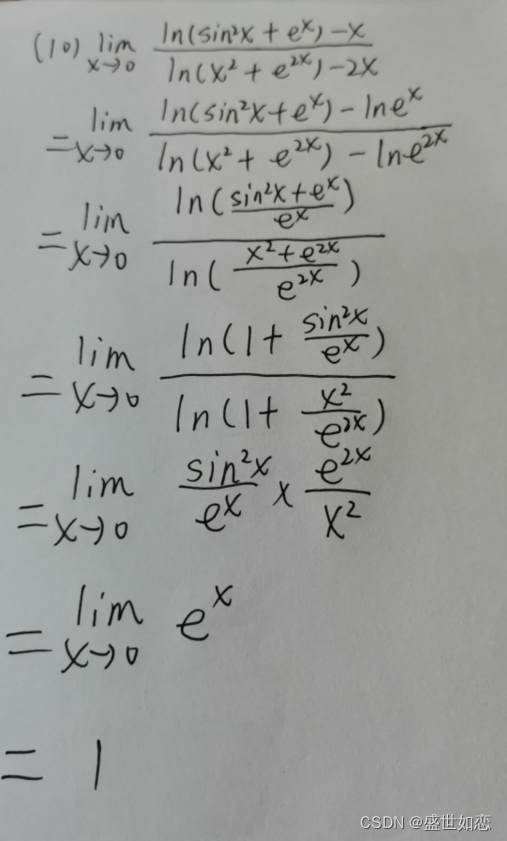 (10) lim x→0 ln(sin²x + eˣ) − x / ln(x² + e²ˣ) − 2x
= lim x→0 ln(sin²x + eˣ) − ln eˣ / ln(x² + e²ˣ) − ln e²ˣ
= lim x→0 ln( sin²x + eˣ / eˣ ) / ln( x² + e²ˣ / e²ˣ )
= lim x→0 ln(1 + sin²x / eˣ ) / ln(1 + x² / e²ˣ )
= lim x→0 sin²x / eˣ × e²ˣ / x²
= lim x→0 eˣ
= 1
CSDN @盛世如恋